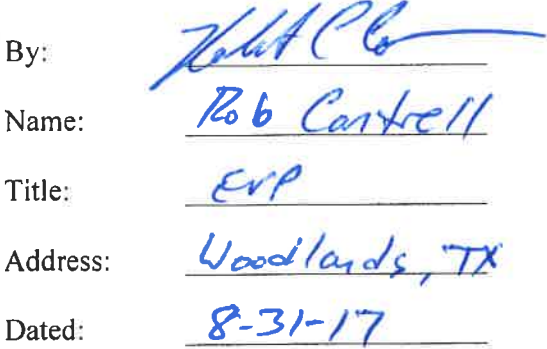 By:
Name: Rob Cantrell
Title: EVP
Address: Woodlands, TX
Dated: 8-31-17